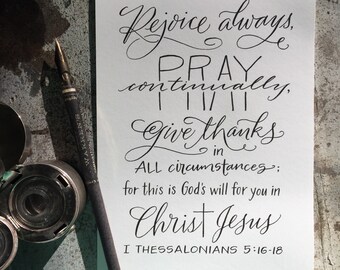 Rejoice always,
PRAY
continually,
give thanks
in
ALL circumstances;
for this is God's will for you in
Christ Jesus
I THESSALONIANS 5:16-18